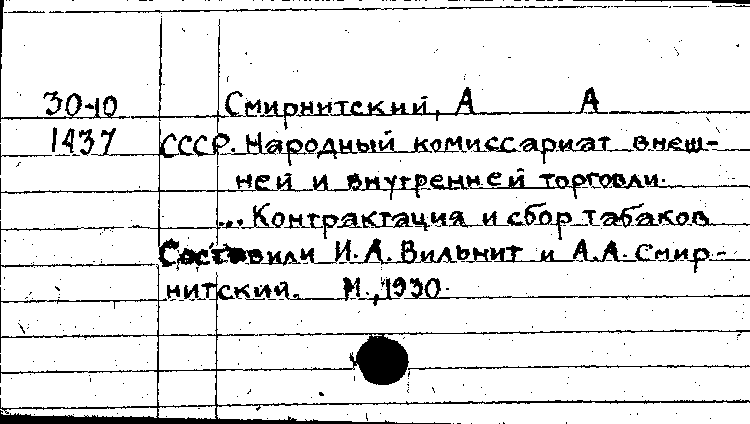 30-10 Смирнитский, А А
1437 СССР. Народный комиссариат внеш-
ней и внутренней торговли.
... Контрактация и сбор табаков
Составили И.А. Вильнит и А.А. Смир-
нитский. М., 1930.